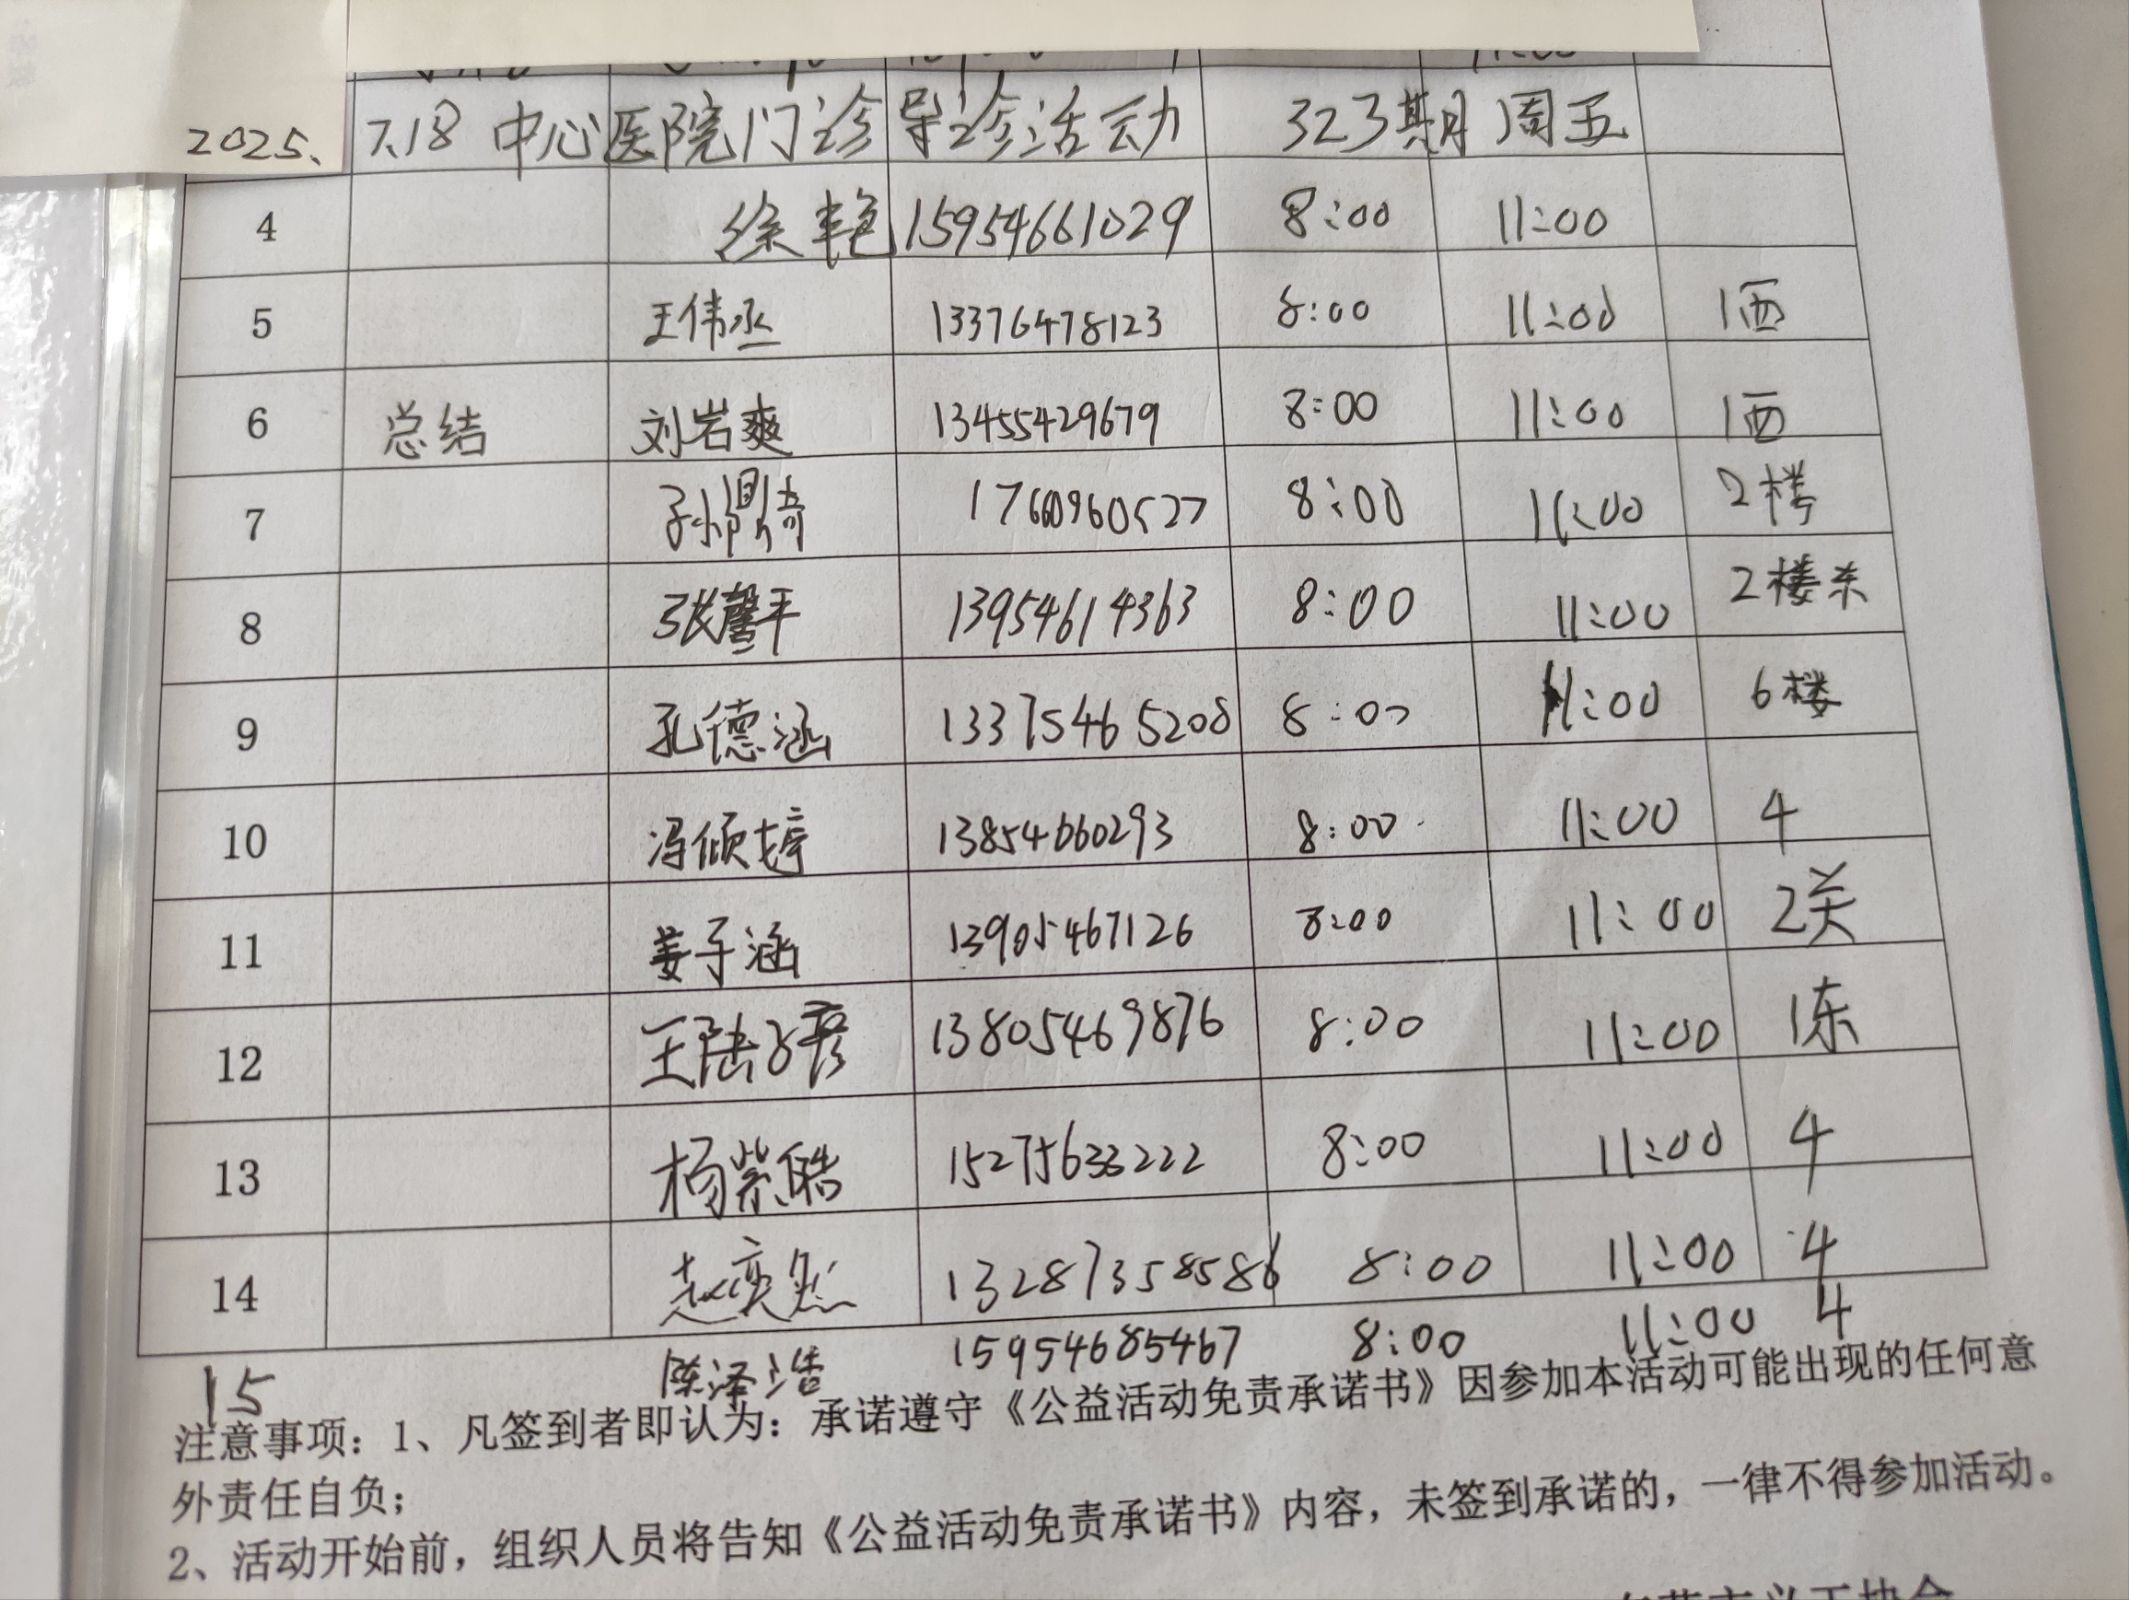 2025、7.18 中心医院门诊导诊活动 323期 周五
4 徐艳 15954661029 8:00 11:00
5 王伟丞 13376478123 8:00 11:00 1西
6 总结 刘岩爽 13455429679 8:00 11:00 1西
7 孙 17660960527 8:00 11:00 2楼
8 张馨平 13954614363 8:00 11:00 2楼东
9 孔德涵 13375465208 8:00 11:00 6楼
10 冯倾婷 13854660293 8:00 11:00 4
11 姜子涵 13905467126 8:00 11:00 2关
12 王陆彦 13805469876 8:00 11:00 1东
13 杨紫皓 15275633222 8:00 11:00 4
14 赵奕然 13287358586 8:00 11:00 4
15 陈泽浩 15954685467 8:00 11:00 4
注意事项：1、凡签到者即认为：承诺遵守《公益活动免责承诺书》因参加本活动可能出现的任何意
外责任自负；
2、活动开始前，组织人员将告知《公益活动免责承诺书》内容，未签到承诺的，一律不得参加活动。